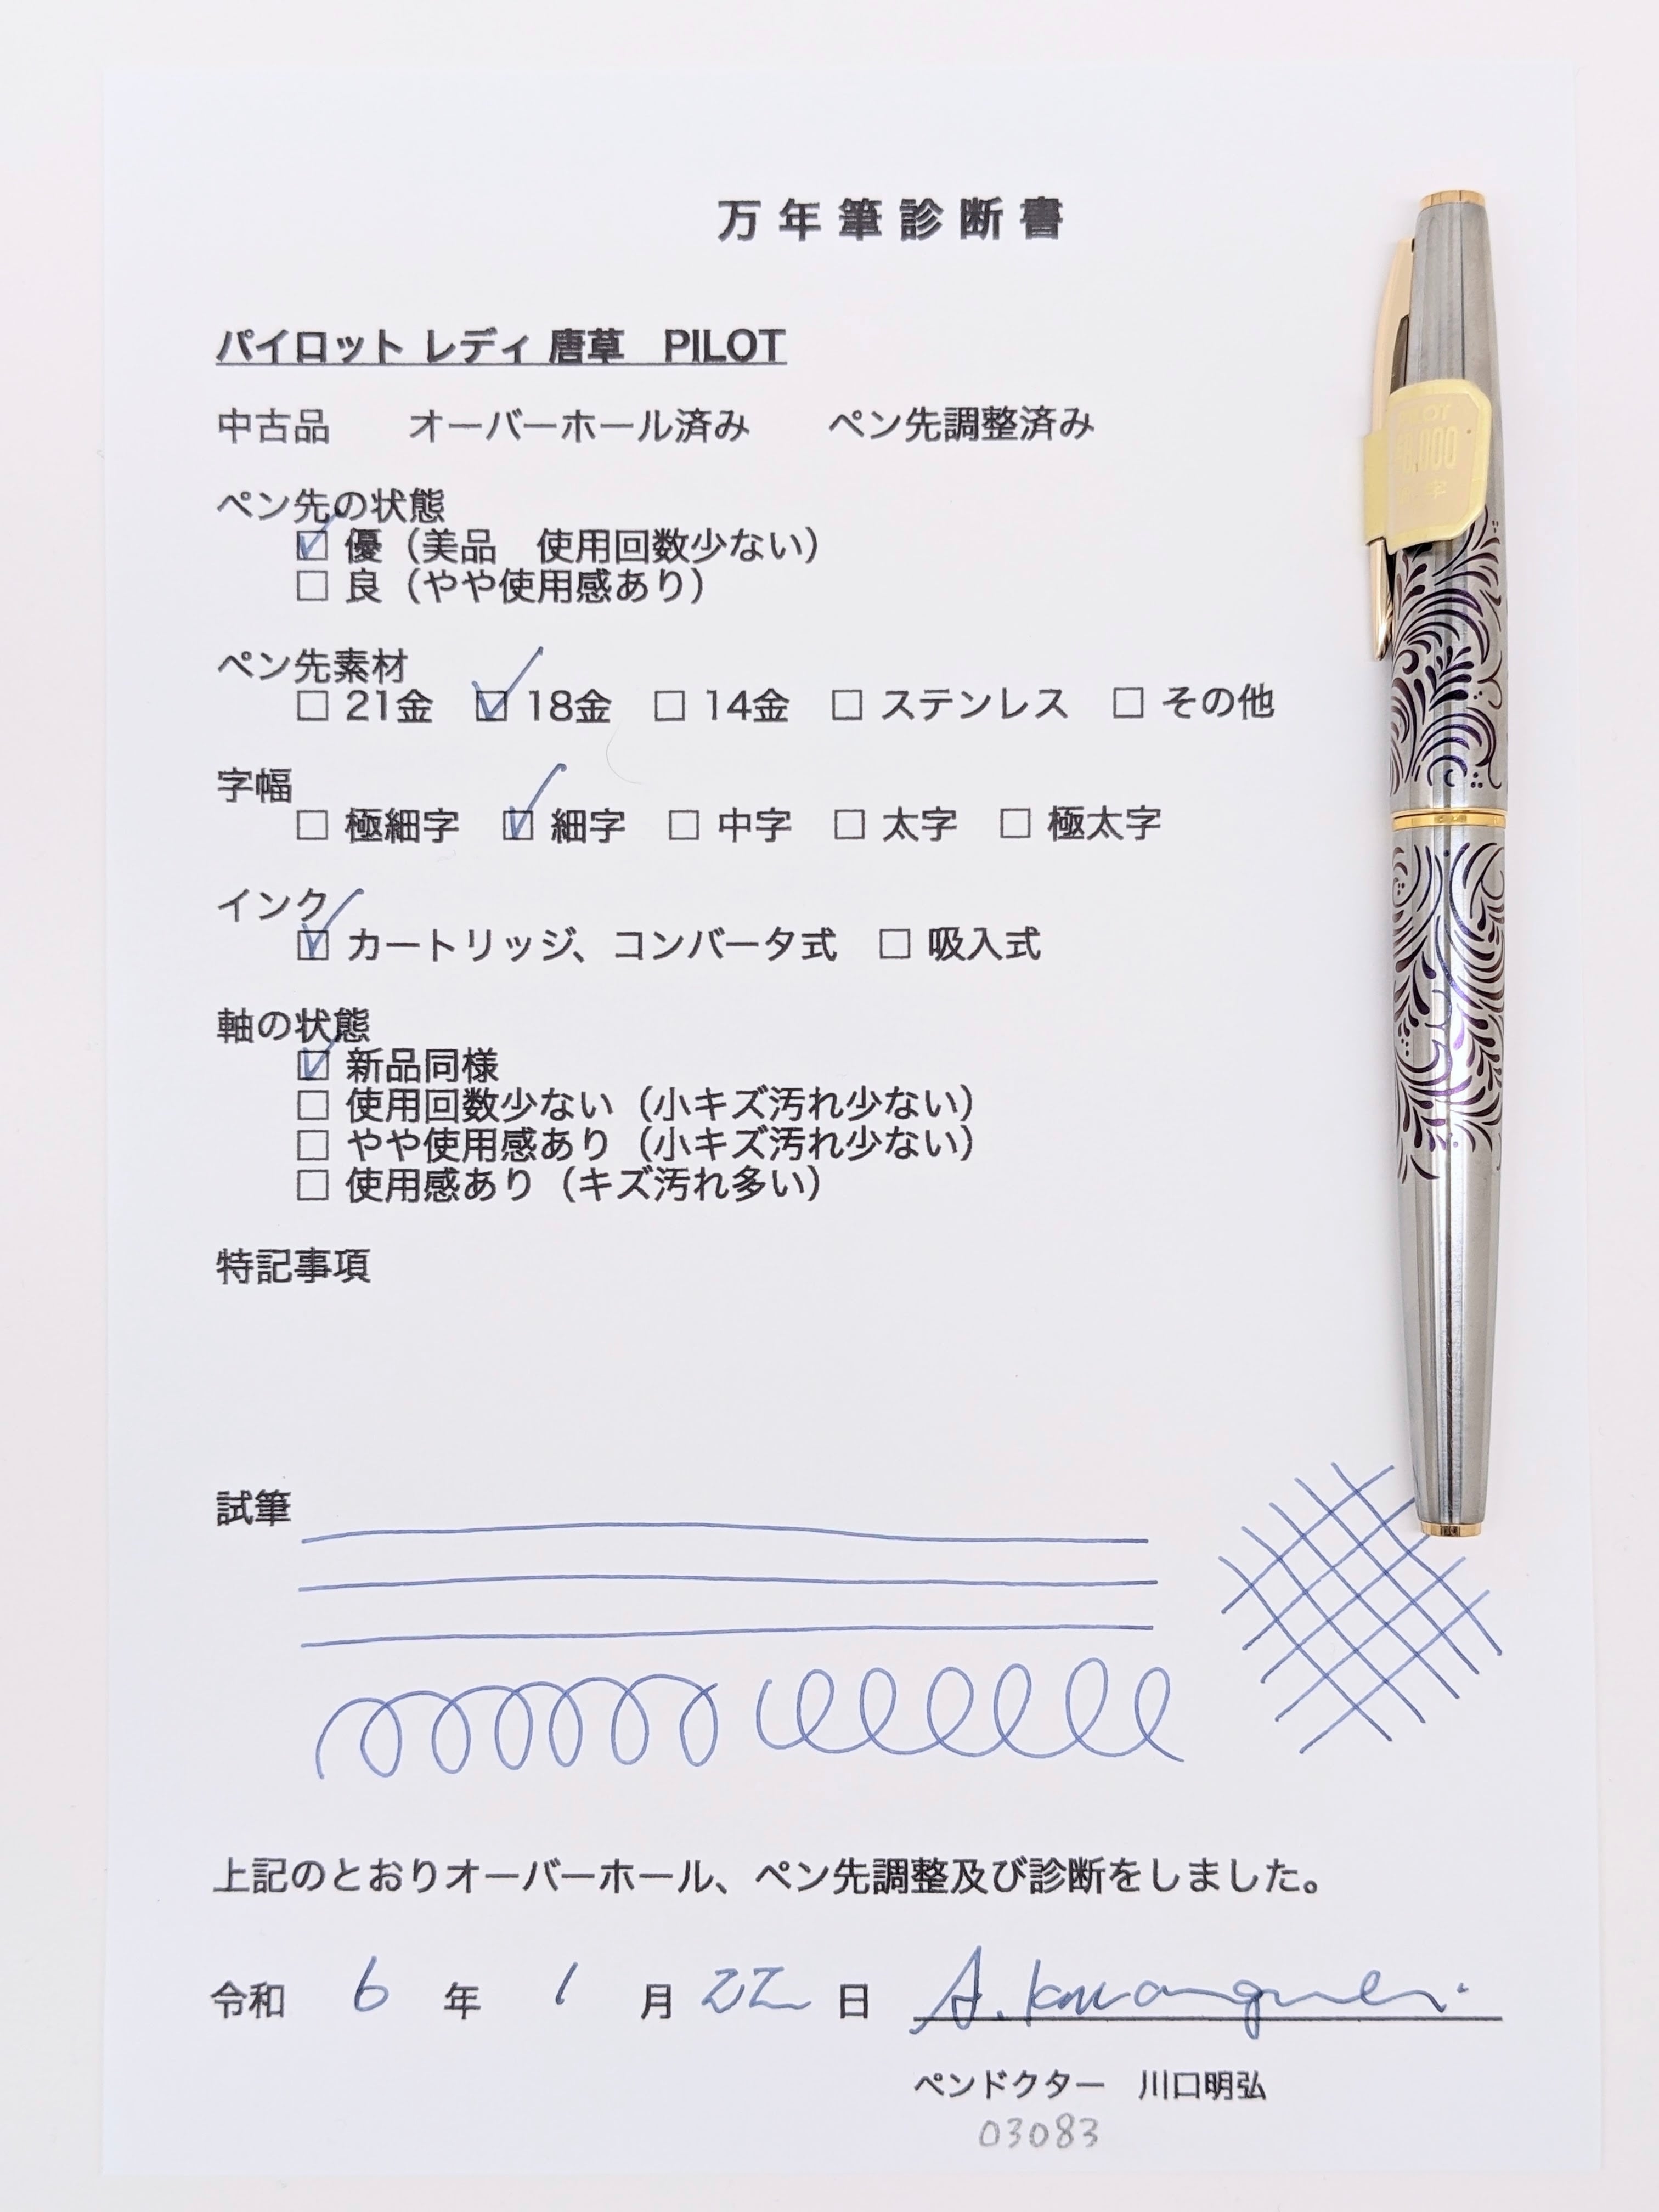 万年筆診断書
パイロット レディ 唐草　PILOT
中古品　　オーバーホール済み　　ペン先調整済み
ペン先の状態
☑ 優（美品　使用回数少ない）
☐ 良（やや使用感あり）
ペン先素材
☐ 21金　☑ 18金　☐ 14金　☐ ステンレス　☐ その他
字幅
☐ 極細字　☑ 細字　☐ 中字　☐ 太字　☐ 極太字
インク
☑ カートリッジ、コンバータ式　☐ 吸入式
軸の状態
☑ 新品同様
☐ 使用回数少ない（小キズ汚れ少ない）
☐ やや使用感あり（小キズ汚れ少ない）
☐ 使用感あり（キズ汚れ多い）
特記事項
試筆
上記のとおりオーバーホール、ペン先調整及び診断をしました。
令和　6　年　1　月　22　日　A. Kawaguchi.
ペンドクター　川口明弘
03083